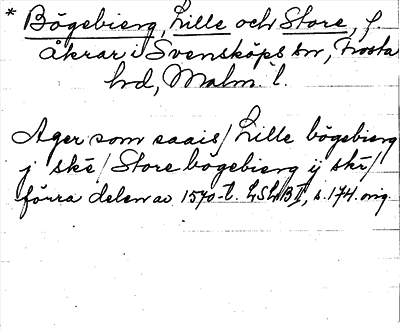 * Bögebierg, Lille och Store, f
åkrar i Svensköps sn, Frosta
hd, Malm. l.
Ager som saais / Lille bögebierg
j skē / Store bögebierg ij skr /
förra delen av 1570-t. LSLB II, s. 174. orig.